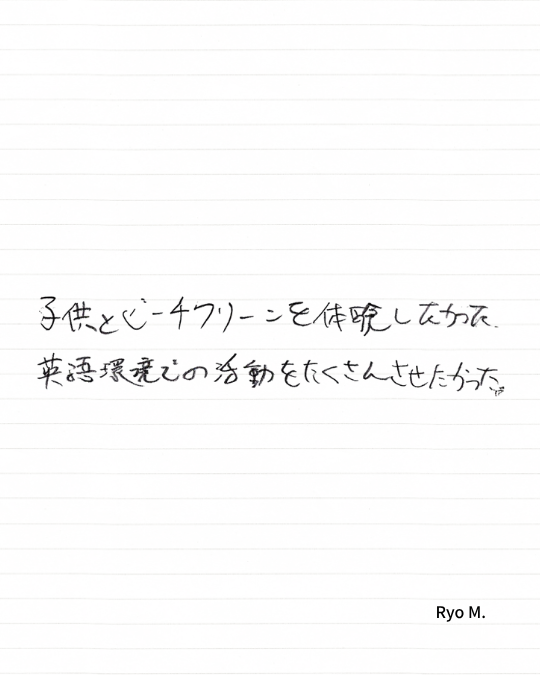 子供とビーチクリーンを体験したかった.
英語環境での活動をたくさんさせたかった。
Ryo M.